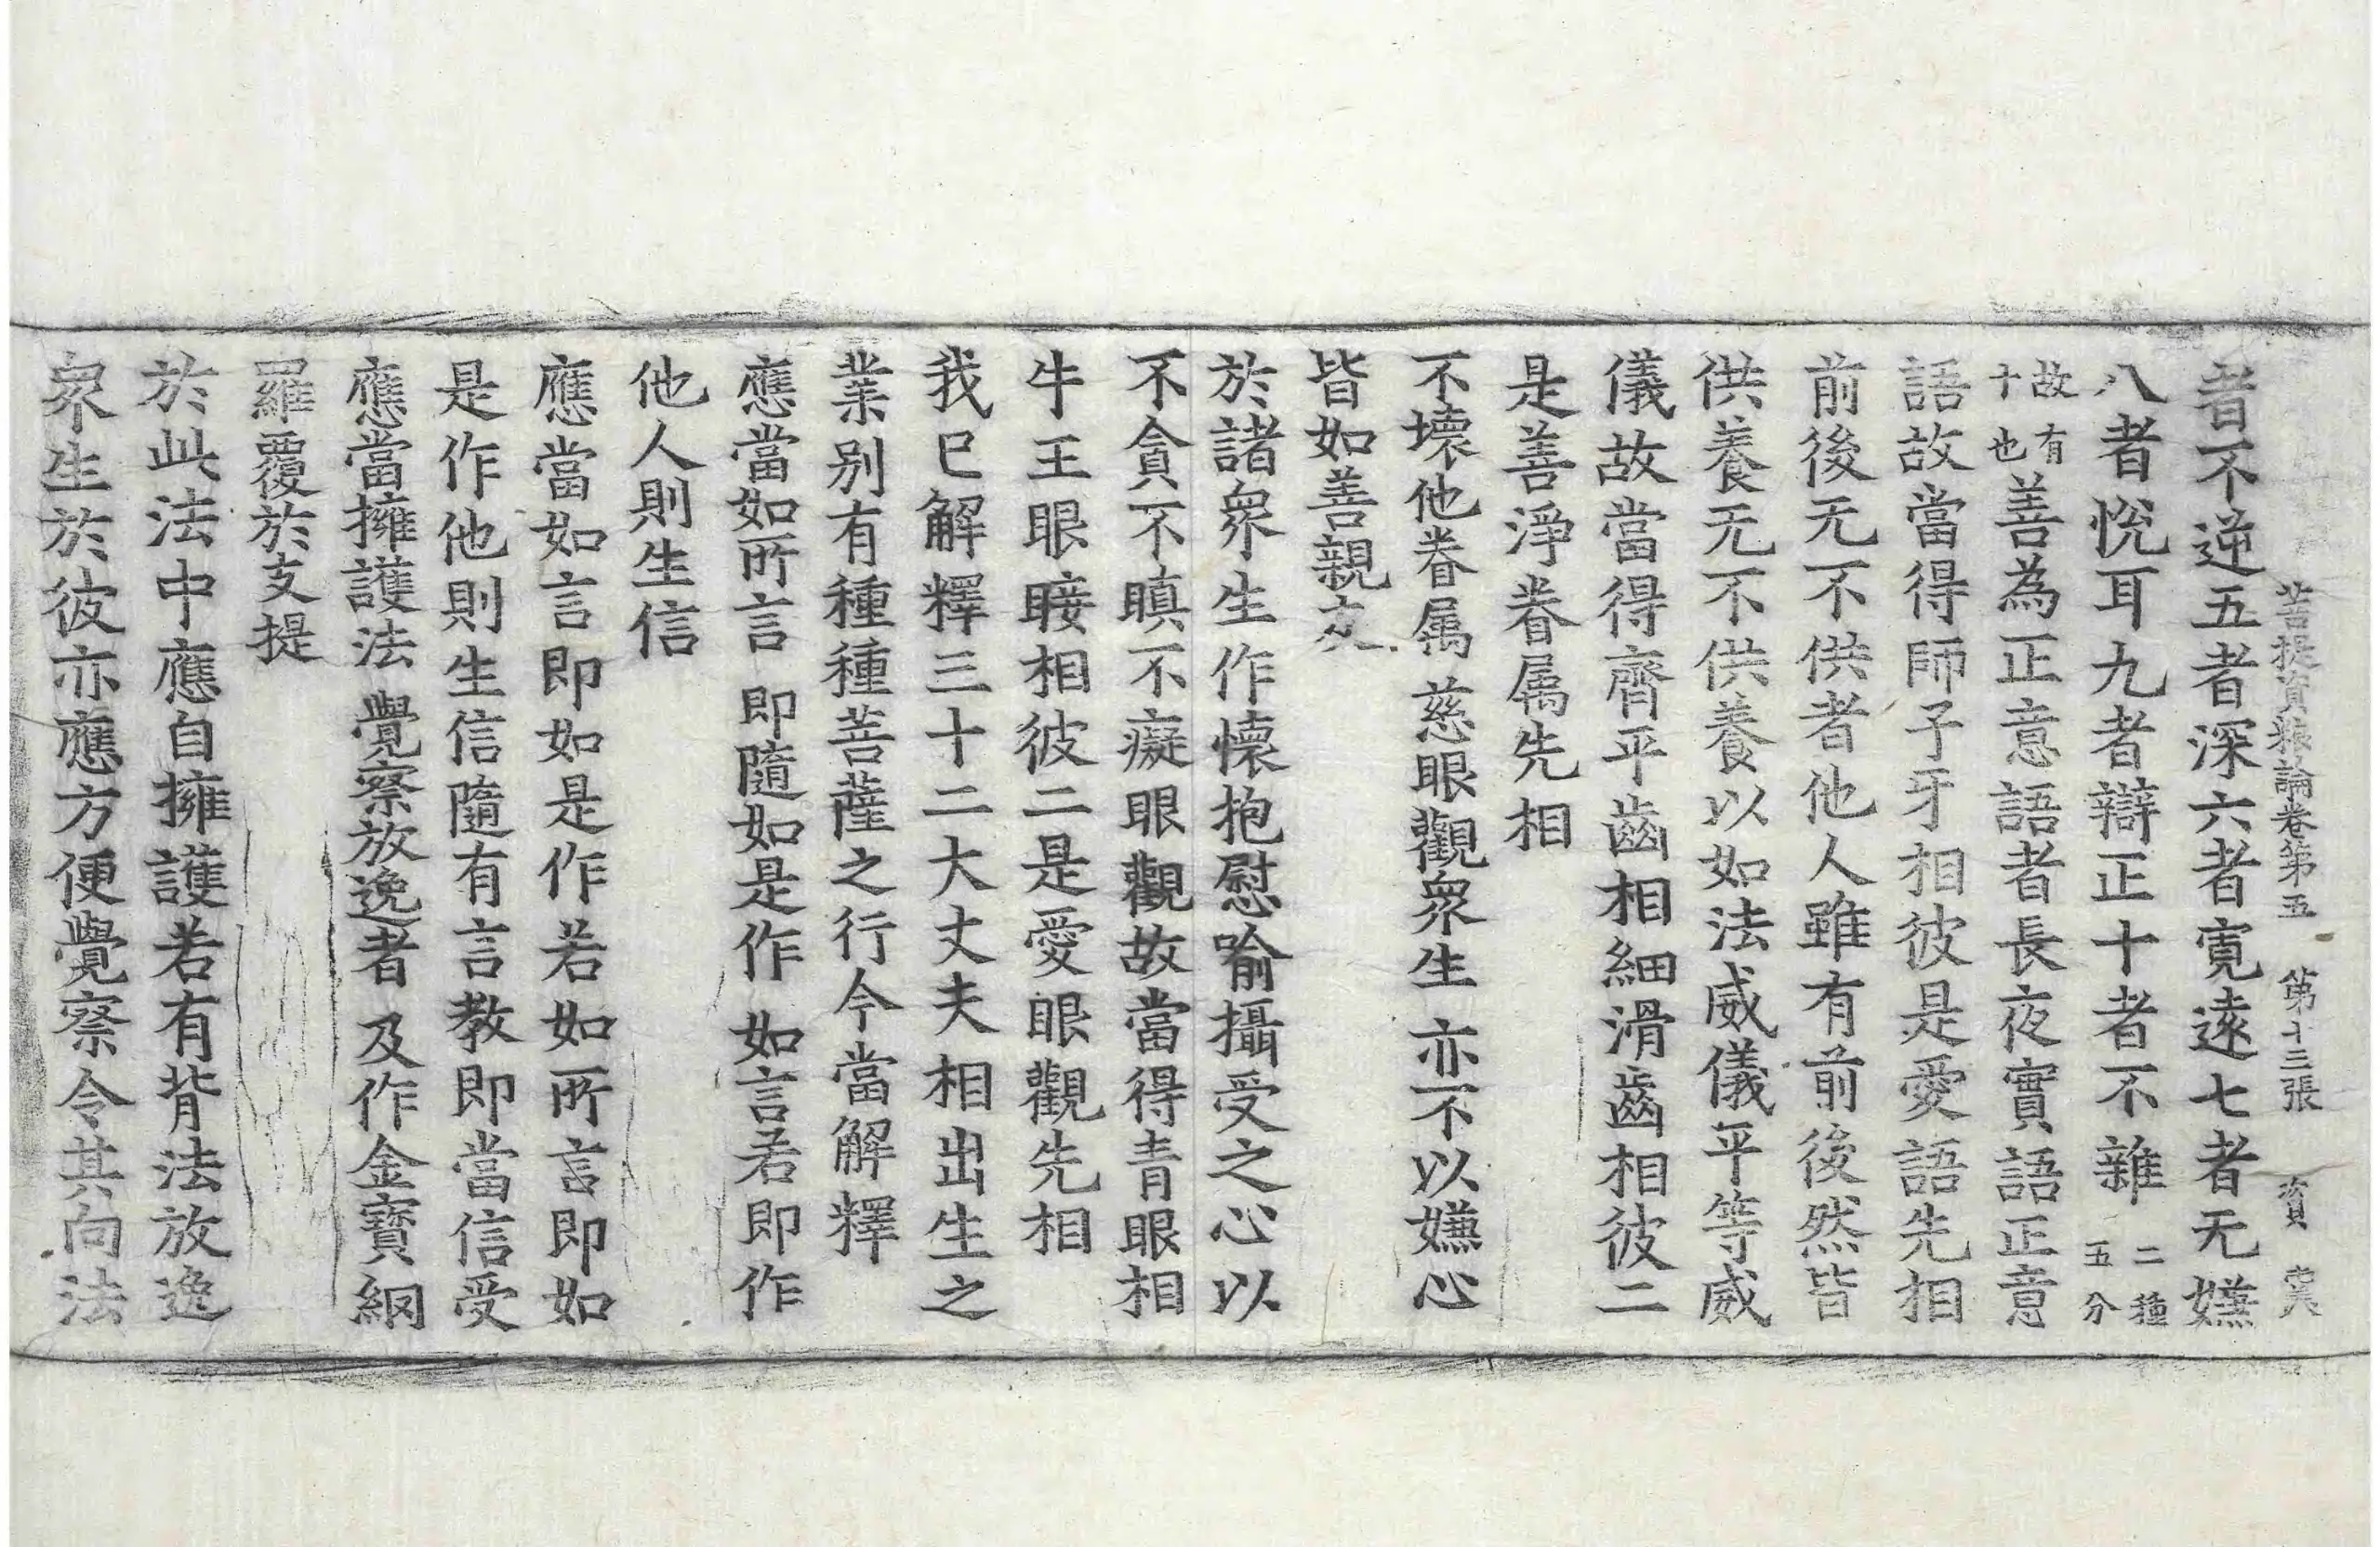 菩提資粮論卷第五 第十三張 資
者不逆五者深六者寛遠七者无嫌
八者悦耳九者辯正十者不雜二種五分
故有十也善為正意語者長夜實語正意
語故當得師子牙相彼是愛語先相
前後无不供者他人雖有前前後然皆
供養无不供養以如法威儀平等威
儀故當得齊平齒相細滑齒相彼二
是善淨眷属先相
不壞他眷属 慈眼觀衆生 亦不以嫌心
皆如善親友
於諸衆生作懷抱慰喻攝受之心以
不貪不瞋不癡眼觀故當得青眼相
牛王眼睫相彼二是愛眼觀先相
我巳解釋三十二大丈夫相出生之
業别有種種菩薩之行今當解釋
應當如所言 即隨如是作 如言若即作
他人則生信
應當如言即如是作若如所言即如
是作他則生信隨有言教即當信受
應當擁護法 覺察放逸者 及作金寶網
羅覆於支提
於此法中應自擁護若有背法放逸
衆生於彼亦應方便覺察令其向法